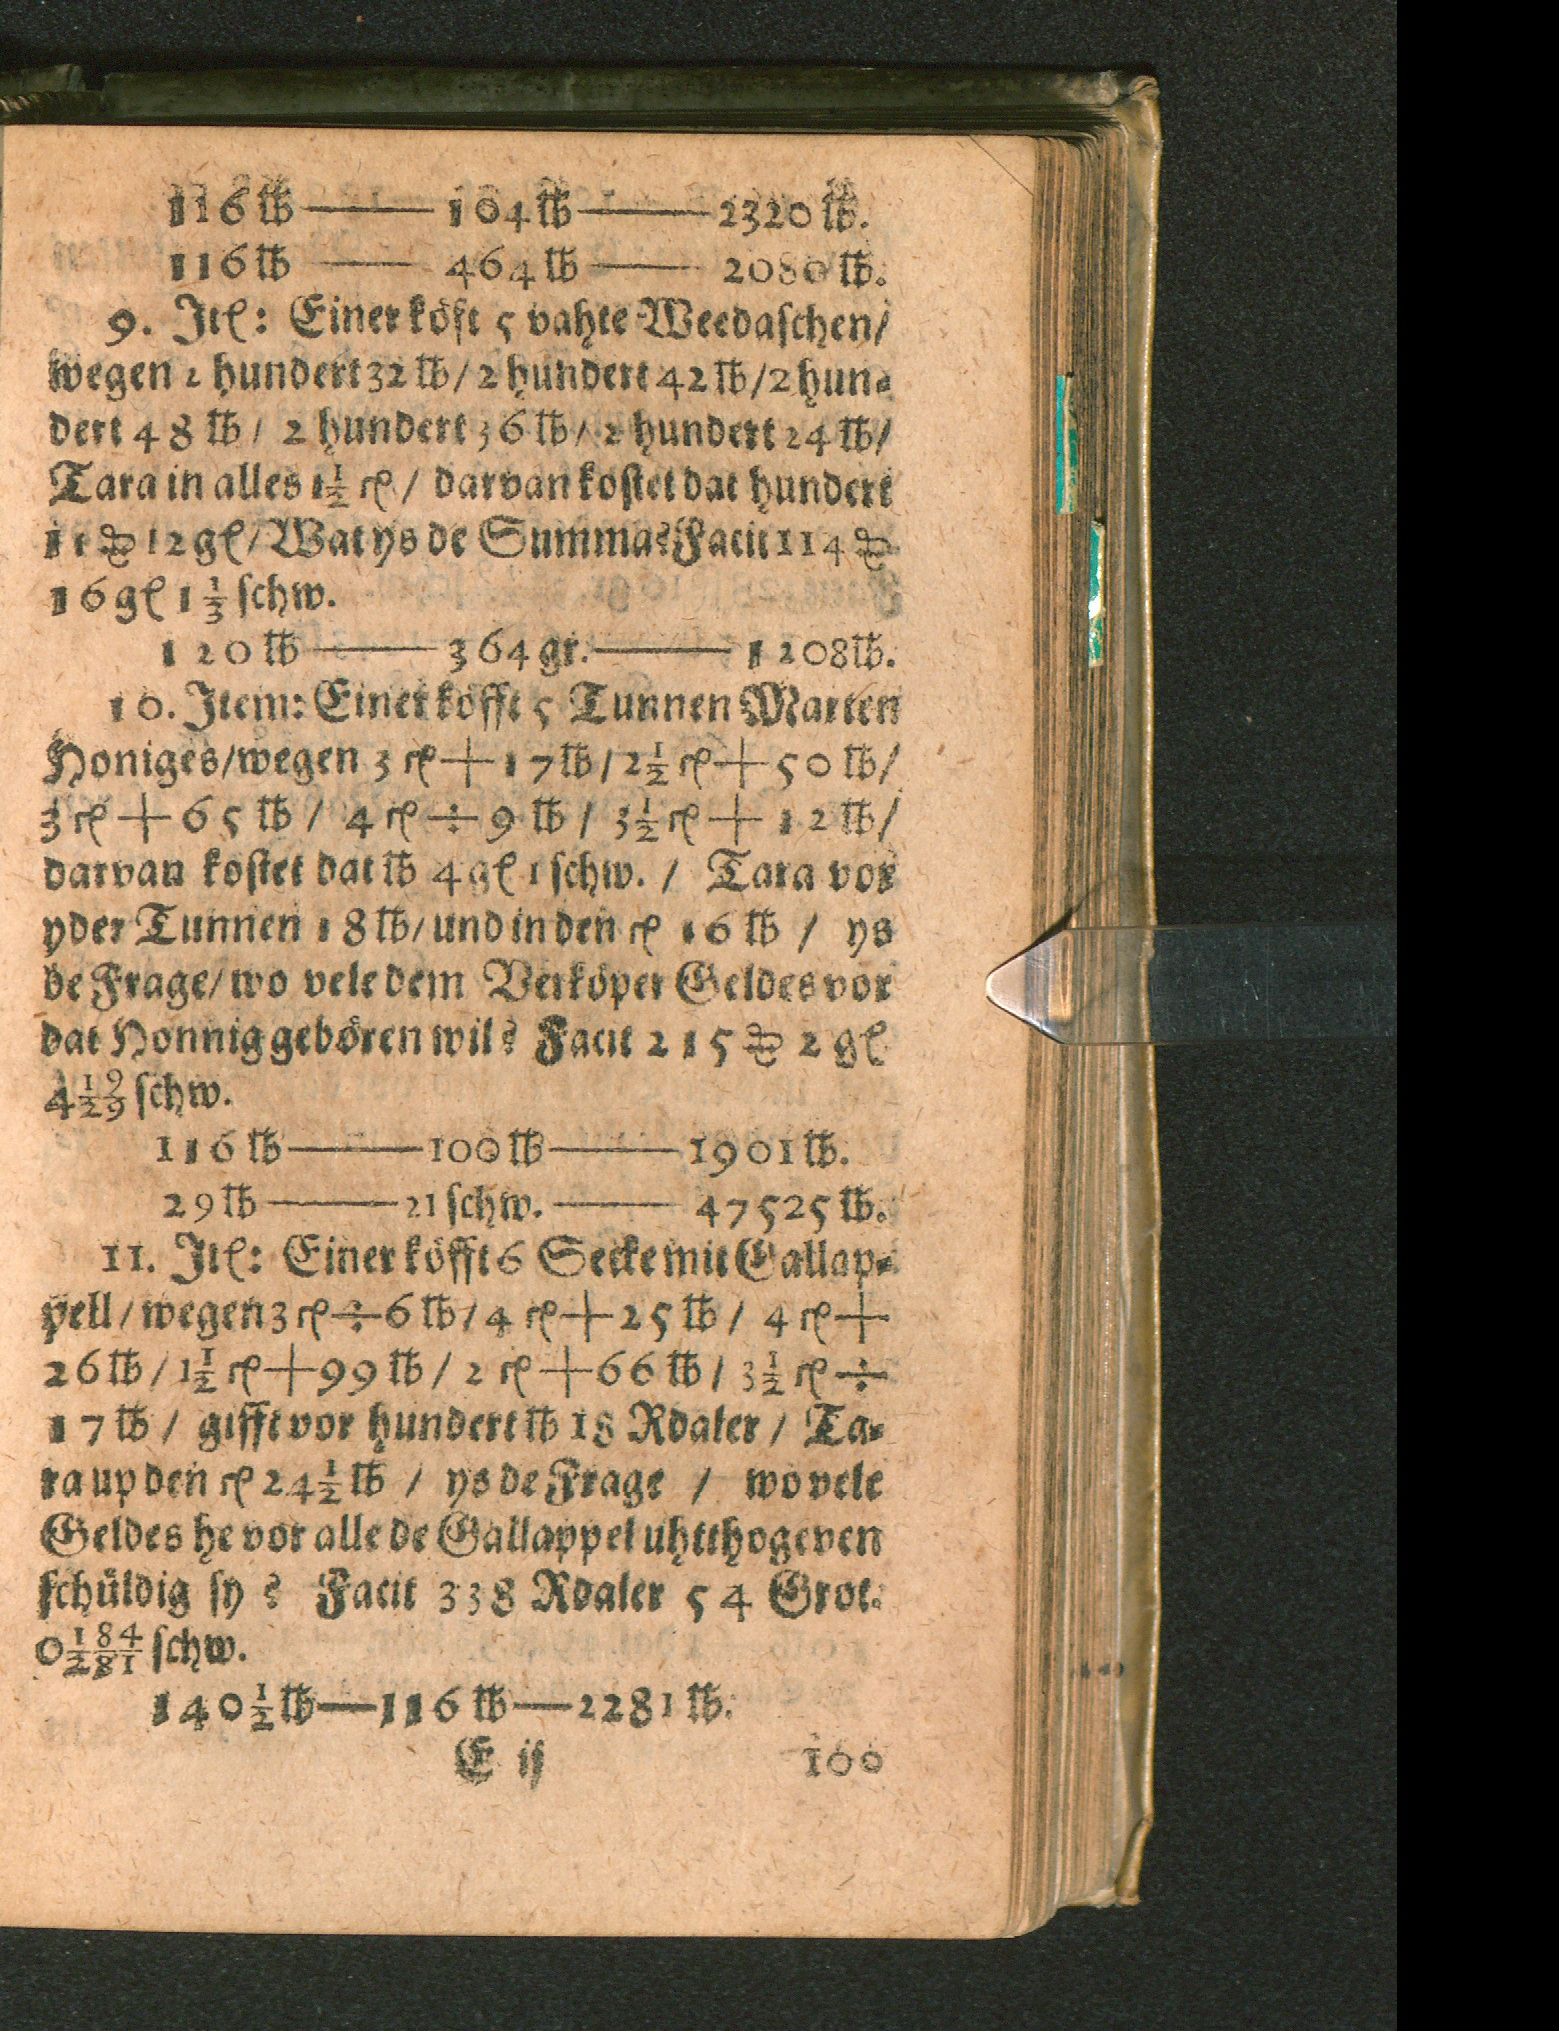 116 ℔ —— 104 ℔ —— 2320 ℔.
116 ℔ —— 464 ℔ —— 2080 ℔.
9. Itꝭ: Einer köft 5 vahte Weedaſchen/
wegen 2 hundert 32 ℔ / 2 hundert 42 ℔ / 2 hun⸗
dert 48 ℔ / 2 hundert 36 ℔ / 2 hundert 24 ℔/
Tara in alles 1½ c℔ / darvan koſtet dat hundert
11 ₰ 12 gꝭ / Wat ys de Summa? Facit 114 ₰
16 gꝭ 1⅓ ſchw.
120 ℔ —— 364 gr. —— 1208 ℔.
10. Item: Einer köfft 5 Tunnen Marten
Honiges/ wegen 3 c℔ + 17 ℔ / 2½ c℔ + 50 ℔/
3 c℔ + 65 ℔ / 4 c℔ ÷ 9 ℔ / 3½ c℔ + 12 ℔/
darvan koſtet dat ℔ 4 gꝭ 1 ſchw. / Tara vor
yder Tunnen 18 ℔/ und in den c℔ 16 ℔ / ys
de Frage/ wo vele dem Verköper Geldes vor
dat Honnig gebören wil? Facit 215 ₰ 2 gꝭ
4 19/29 ſchw.
116 ℔ —— 100 ℔ —— 1901 ℔.
29 ℔ —— 21 ſchw. —— 47525 ℔.
11. Itꝭ: Einer köfft 6 Secke mit Gallap⸗
pell / wegen 3 c℔ ÷ 6 ℔ / 4 c℔ + 25 ℔ / 4 c℔ +
26 ℔ / 1½ c℔ + 99 ℔ / 2 c℔ + 66 ℔ / 3½ c℔ ÷
17 ℔ / gifft vor hundert ℔ 18 Rdaler / Ta⸗
ra up den c℔ 24½ ℔ / ys de Frage / wo vele
Geldes he vor alle de Gallappel uhtthogeven
ſchüldig ſy? Facit 338 Rdaler 54 Grot.
0 184/281 ſchw.
140½ ℔ — 116 ℔ — 2281 ℔.
E ij 100